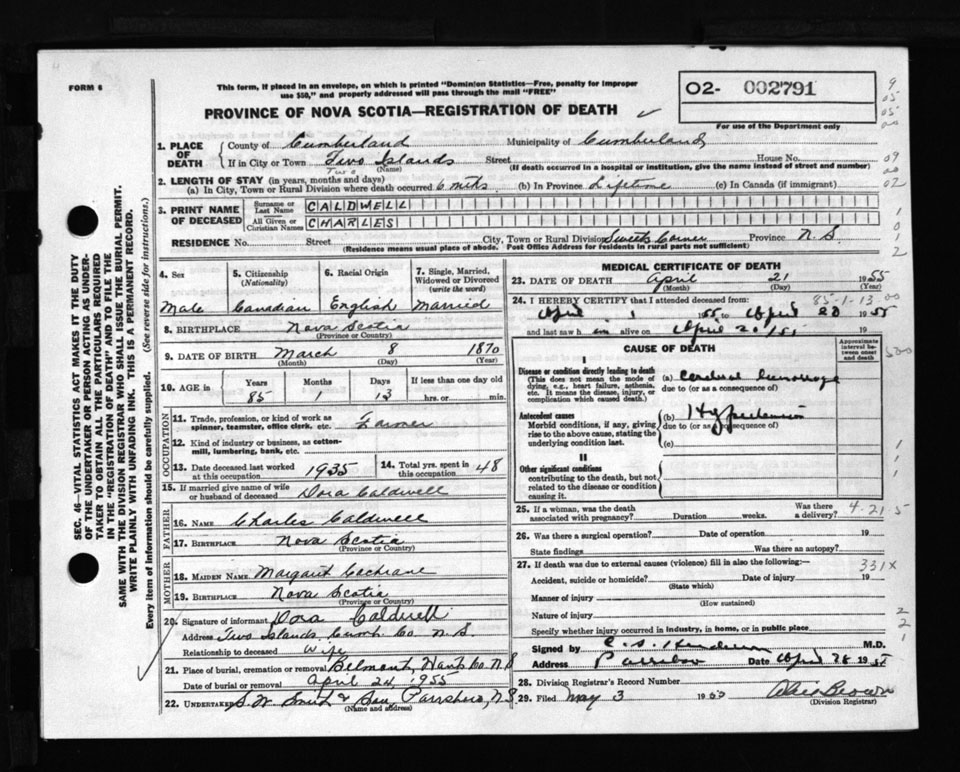 FORM 6
This form, if placed in an envelope, on which is printed "Dominion Statistics—Free, penalty for improper
use $50," and properly addressed will pass through the mail "FREE"
PROVINCE OF NOVA SCOTIA—REGISTRATION OF DEATH
02- 002791
For use of the Department only
1. PLACE OF DEATH
County of Cumberland Municipality of Cumberland
If in City or Town Two Islands Street House No.
Two (Name) (If death occurred in a hospital or institution, give the name instead of street and number)
2. LENGTH OF STAY (in years, months and days)
(a) In City, Town or Rural Division where death occurred 6 mths. (b) In Province Lifetime (c) In Canada (if immigrant)
3. PRINT NAME OF DECEASED
Surname or Last Name CALDWELL
All Given or Christian Names CHARLES
RESIDENCE No. Street City, Town or Rural Division Sweets Corner Province N.S.
(Residence means usual place of abode. Post Office Address for residents in rural parts not sufficient)
4. Sex Male
5. Citizenship (Nationality) Canadian
6. Racial Origin English
7. Single, Married, Widowed or Divorced (write the word) Married
8. BIRTHPLACE Nova Scotia
(Province or Country)
9. DATE OF BIRTH March 8 1870
(Month) (Day) (Year)
10. AGE in Years 85 Months 1 Days 13 If less than one day old hrs. or min.
OCCUPATION
11. Trade, profession, or kind of work as spinner, teamster, office clerk, etc. Farmer
12. Kind of industry or business, as cotton-mill, lumbering, bank, etc.
13. Date deceased last worked at this occupation 1935
14. Total yrs. spent in this occupation 48
15. If married give name of wife or husband of deceased Dora Caldwell
FATHER
16. NAME Charles Caldwell
17. BIRTHPLACE Nova Scotia
(Province or Country)
MOTHER
18. MAIDEN NAME Margaret Cochrane
19. BIRTHPLACE Nova Scotia
(Province or Country)
20. Signature of informant Dora Caldwell
Address Two Islands Cumb. Co. N.S.
Relationship to deceased Wife
21. Place of burial, cremation or removal Belmont, Hants Co. N.S
Date of burial or removal April 24, 1955
22. UNDERTAKER S. W. Smith & Son, Parrsboro, N.S.
(Name and address)
MEDICAL CERTIFICATE OF DEATH
23. DATE OF DEATH April 21 1955
(Month) (Day)
85-1-13
24. I HEREBY CERTIFY that I attended deceased from:
April 1 1955 to April 20 1955
and last saw h im alive on April 20/55
CAUSE OF DEATH
Approximate interval between onset and death
I
Disease or condition directly leading to death
(This does not mean the mode of dying, e.g., heart failure, asthenia, etc. It means the disease, injury, or complication which caused death.)
(a) Cerebral hemorrhage
due to (or as a consequence of)
Antecedent causes
Morbid conditions, if any, giving rise to the above cause, stating the underlying condition last.
(b) Hypertension
due to (or as a consequence of)
(c)
II
Other significant conditions
contributing to the death, but not related to the disease or condition causing it.
25. If a woman, was the death associated with pregnancy? Duration weeks. Was there a delivery?
4-21 5
26. Was there a surgical operation? Date of operation 19
State findings Was there an autopsy?
27. If death was due to external causes (violence) fill in also the following:—
331X
Accident, suicide or homicide? Date of injury 19
(State which)
Manner of injury
(How sustained)
Nature of injury
Specify whether injury occurred in industry, in home, or in public place
Signed by M.D.
Address Parrsboro Date April 28 1955
28. Division Registrar's Record Number
29. Filed May 3 19 Brown
(Division Registrar)
SEC. 46—VITAL STATISTICS ACT MAKES IT THE DUTY
OF THE UNDERTAKER OR PERSON ACTING AS UNDER-
TAKER TO OBTAIN ALL THE PARTICULARS REQUIRED
IN THE "REGISTRATION OF DEATH" AND TO FILE THE
SAME WITH THE DIVISION REGISTRAR WHO SHALL ISSUE THE BURIAL PERMIT.
WRITE PLAINLY WITH UNFADING INK. THIS IS A PERMANENT RECORD.
Every item of information should be carefully supplied. (See reverse side for instructions.)